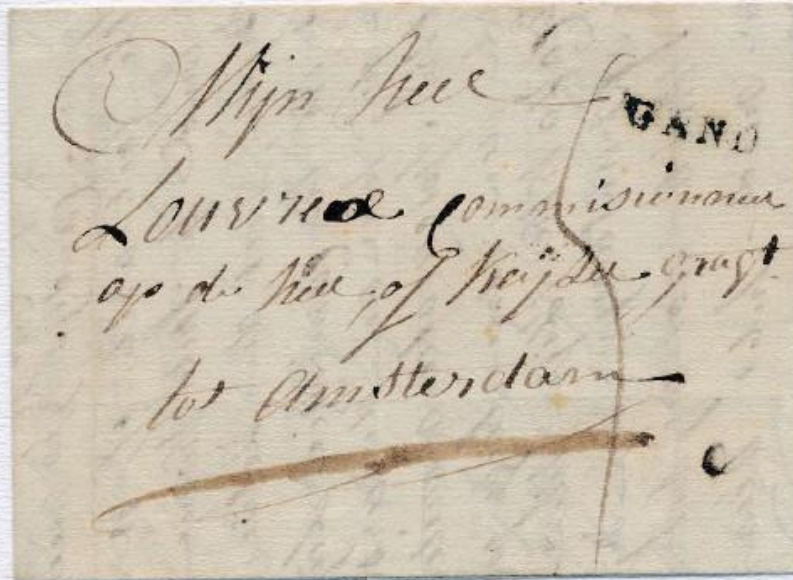 Mijn heer
GAND
commisionnair
op de heer of Keijser gragt
tot Amsterdam